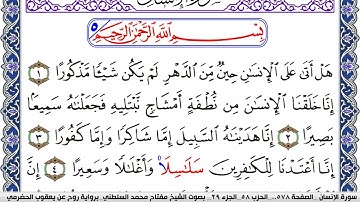 بِسْمِ اللَّهِ الرَّحْمَٰنِ الرَّحِيمِ
هَلْ أَتَىٰ عَلَى الْإِنسَانِ حِينٌ مِّنَ الدَّهْرِ لَمْ يَكُن شَيْئًا مَّذْكُورًا ١
إِنَّا خَلَقْنَا الْإِنسَانَ مِن نُّطْفَةٍ أَمْشَاجٍ نَّبْتَلِيهِ فَجَعَلْنَاهُ سَمِيعًا
بَصِيرًا ٢ إِنَّا هَدَيْنَاهُ السَّبِيلَ إِمَّا شَاكِرًا وَإِمَّا كَفُورًا ٣
إِنَّا أَعْتَدْنَا لِلْكَافِرِينَ سَلَاسِلَا وَأَغْلَالًا وَسَعِيرًا ٤
سورة الإنسان الصفحة ٥٧٨ الحزب ٥٨ الجزء ٢٩ بصوت الشيخ مفتاح محمد السلطني برواية روح عن يعقوب الحضرمي